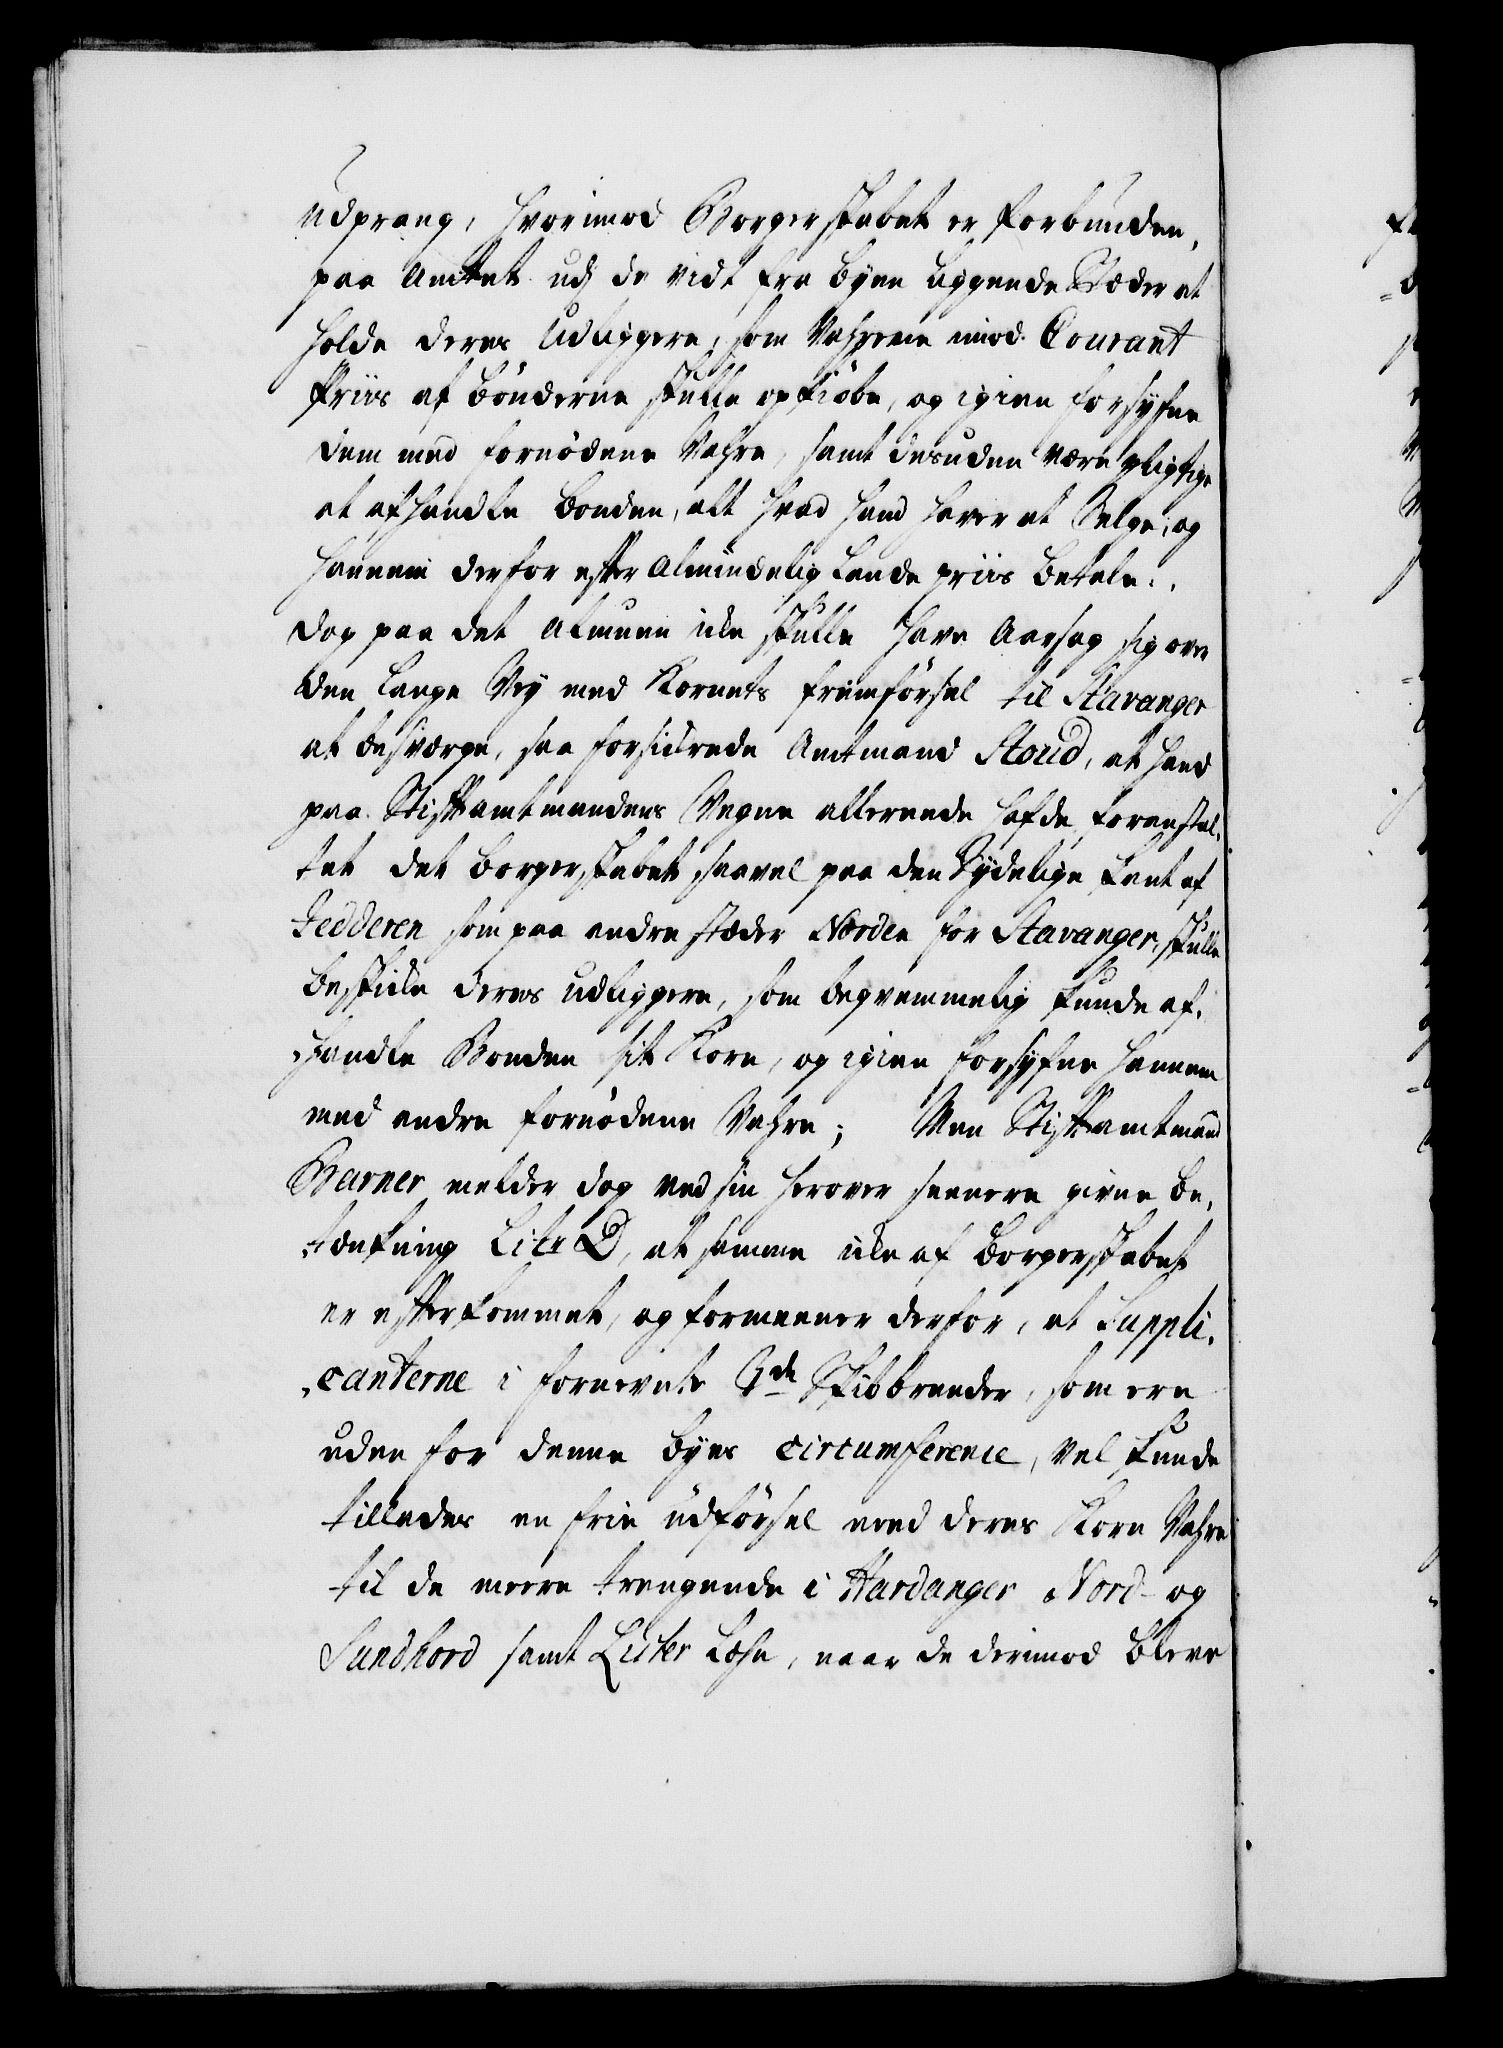 udprang, hvorimod Borgerskabet er forbunden,
paa Amtet udj de vidt fra Byen liggende Stæder at
holde deres Udliggere, som Vahrene imod Courant
Priis af Bönderne skulle opkiöbe, og igien forsyfne
dem med fornödene Vahre, samt desuden være pligtige
at afhandle Bonden, alt hvad hand haver at Selge, og
hannem derfor efter Almindelig Lands priis betale.
Dog paa det Almuen icke skulle have Aarsag sig over
den lange Vej med Kornets fremförsel til Stavanger
at besværge, saa forsickrede Amtmand Stoud, at hand
paa Stiftamtmandens Vegne allereede hafde foranstal,
tet det Borgerskabet saavel paa den Sydelige kant af
Jedderen som paa andre stæder Norden for Stavanger, skulle
beskicke deres udliggere, som beqvemmelig kunde af,
handle Bonden sit Korn, og igien forsyfne hannem
med andre fornödene Vahre; Men Stiftamtmand
Barner melder dog ved sin herover seenere givne be,
tænkning Litr D, at samme icke af Borgerskabet
er efterkommet, og formeener derfor, at Suppli,
canterne i fornevnte 3de Skibbreeder, som ere
uden for denne Byes circumference, vel kunde
tillades en frie udförsel med deres Korn Vahre
til de meere trengende i Hardanger Nord- og
Sundhord samt Lyster Læhn, naar de derimod bleve